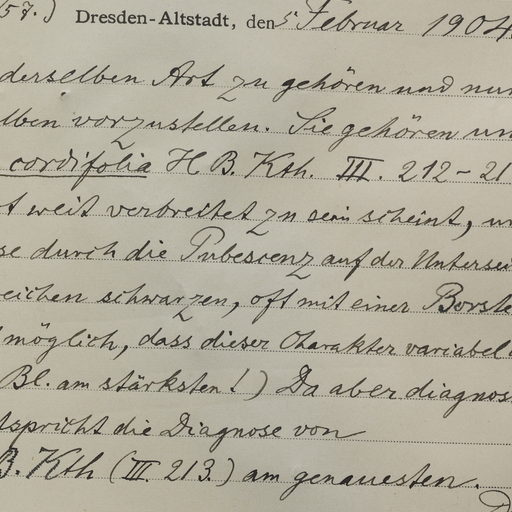 57.) Dresden-Altstadt, den 5. Februar 1904
derselben Art zu gehören und nur
lben vorzustellen. Sie gehören un
cordifolia H B. Kth. III. 212 - 21
t weit verbreitet zu sein scheint, u
se durch die Pubescenz auf der Untersei
eichen schwarzen, oft mit einer Borste
möglich, dass dieser Charakter variabel
Bl. am stärksten!) Da aber diagnos
tspricht die Diagnose von
B. Kth (III. 213.) am genauesten.
D